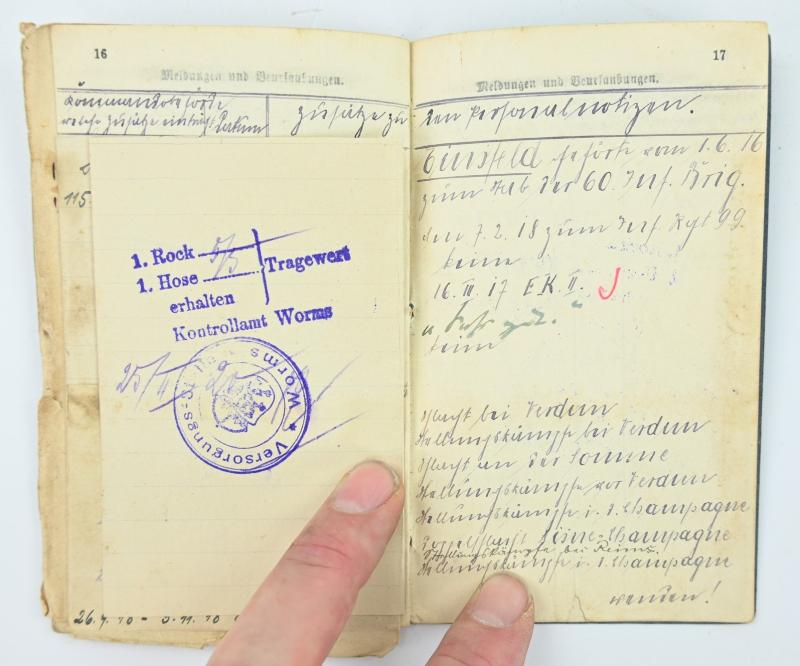 16
Meldungen und Beurlaubungen.
Kommandobehörde
welche Zusätze einträgt. Datum
Zusätze zu
115.
1. Rock
1. Hose
Tragewert
erhalten
Kontrollamt Worms
25/
Versorgungs- Worms
26.7.10 -
17
Meldungen und Beurlaubungen.
den Personalnotizen.
gehörte vom 1.6.16
zum Stab der 60. Inf. Brig.
den 7.2.18 zum Inf. Rgt 99.
keine
16.III.17 E.K. II.
u. Sehr gut.
keine
Schlacht bei Verdun
Stellungskämpfe bei Verdun
Schlacht an der Somme
Stellungskämpfe vor Verdun
Stellungskämpfe i. d. Champagne
Doppelschlacht Aisne-Champagne
Stellungskämpfe bei Reims.
Stellungskämpfe i. d. Champagne
wenden!